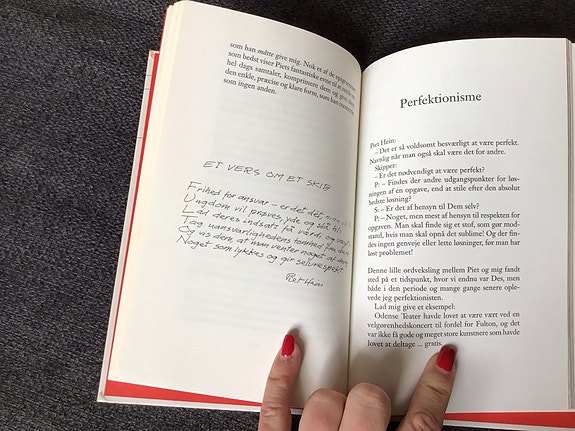 som han måtte give mig. Nok et af de epigrammer,
som bedst viser Piets fantastiske evne til at samle en
hel dags samtaler, komprimere dem og give dem
den enkle, præcise og klare form, som han mestrede
som ingen anden.
ET VERS OM ET SKIB
Frihed for ansvar – er det det, man vil?
Ungdom vil prøves, yde og slå til.
Lad deres indsats få værdi og vægt.
Tag uansvarlighedens tomhed fra dem
Og vis dem, at man venter noget af dem
Noget som lykkes og gir selvrespekt
Piet Hein
Perfektionisme
Piet Hein:
– Det er så voldsomt besværligt at være perfekt.
Nævnlig når man også skal være det for andre.
Skipper:
– Er det nødvendigt at være perfekt?
P: – Findes der andre udgangspunkter for løs-
ningen af en opgave, end at stile efter den absolut
bedste løsning?
S: – Er det af hensyn til Dem selv?
P: – Noget, men mest af hensyn til respekten for
opgaven. Man skal finde sig et stof, som gør mod-
stand, hvis man skal opnå det sublime! Og der fin-
des ingen genveje eller lette løsninger, før man har
løst problemet!
Denne lille ordveksling mellem Piet og mig fandt
sted på et tidspunkt, hvor vi endnu var Des, men
både i den periode og mange gange senere ople-
vede jeg perfektionisten.
Lad mig give et eksempel:
Odense Teater havde lovet at være vært ved en
velgørenhedskoncert til fordel for Fulton, og det
var ikke få gode og meget store kunstnere som havde
lovet at deltage ... gratis.